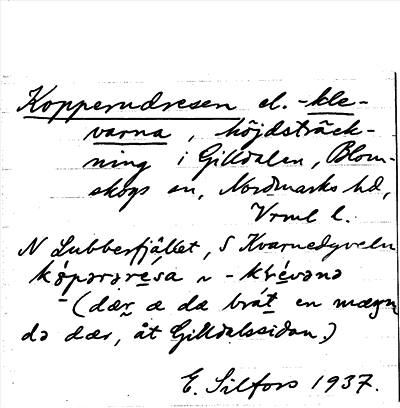 Kopperudresen el. -kle-
varna, höjdsträck-
ning i Gilldalen, Blom-
skogs sn, Nordmarks hd,
Vrml l.
N Lubberfjället, S Kvarnedyveln
kǫ́pərəre̱sa ~ -kle̱vənə
(dær æ da brát en mægn
də dær, åt Gilldalssidan.)
E. Silfors 1937.